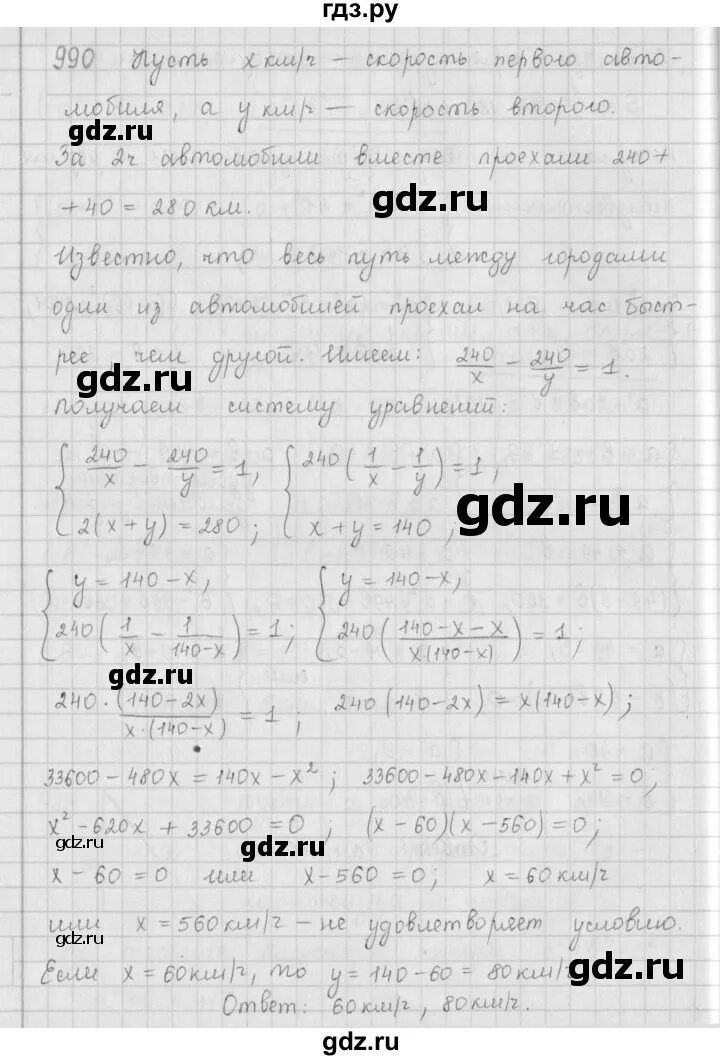 гдз.ру
990 Пусть x км/ч – скорость первого авто-
мобиля, а y км/ч – скорость второго.
gdz.ru
За 2ч автомобили вместе проехали 240+
gdz.ru
+40 = 280 км.
Известно, что весь путь между городами
gdz.ru
один из автомобилей проехал на час быст-
рее, чем другой. Имеем: 240/x - 240/y = 1.
gdz.ru
Получаем систему уравнений:
{ 240/x - 240/y = 1, { 240(1/x - 1/y) = 1,
gdz.ru
2(x+y) = 280; x+y = 140;
{ y = 140-x, { y = 140-x,
240(1/x - 1/(140-x)) = 1; 240((140-x-x)/(x(140-x))) = 1;
gdz.ru
gdz.ru
240·(140-2x)/(x·(140-x)) = 1; 240(140-2x) = x(140-x);
gdz.ru
33600-480x = 140x-x²; 33600-480x-140x+x² = 0;
x²-620x+33600 = 0; (x-60)(x-560) = 0;
gdz.ru
gdz.ru
x-60 = 0 или x-560 = 0; x = 60 км/ч
или x = 560 км/ч – не удовлетворяет условию.
gdz.ru
Если x = 60 км/ч, то y = 140-60 = 80 км/ч
gdz.ru
Ответ: 60 км/ч, 80 км/ч.
gdz.ru
gdz.ru